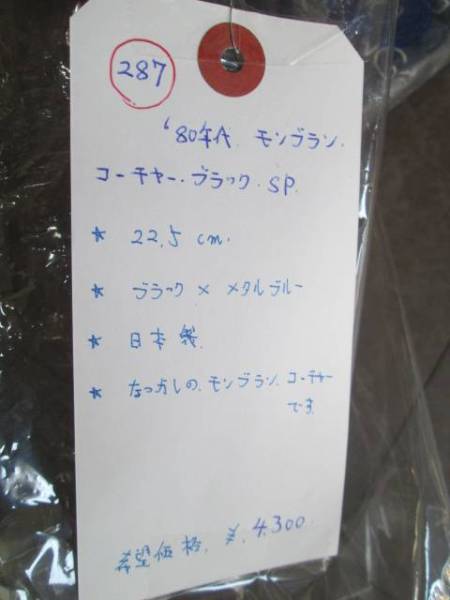 287
'80年代 モンブラン.
コーチャー・ブラック.SP.
* 22.5 cm.
* ブラック × メタルブルー
* 日本製
* なつかしの、モンブラン、コーチャー
です.
希望価格. ¥. 4.300.